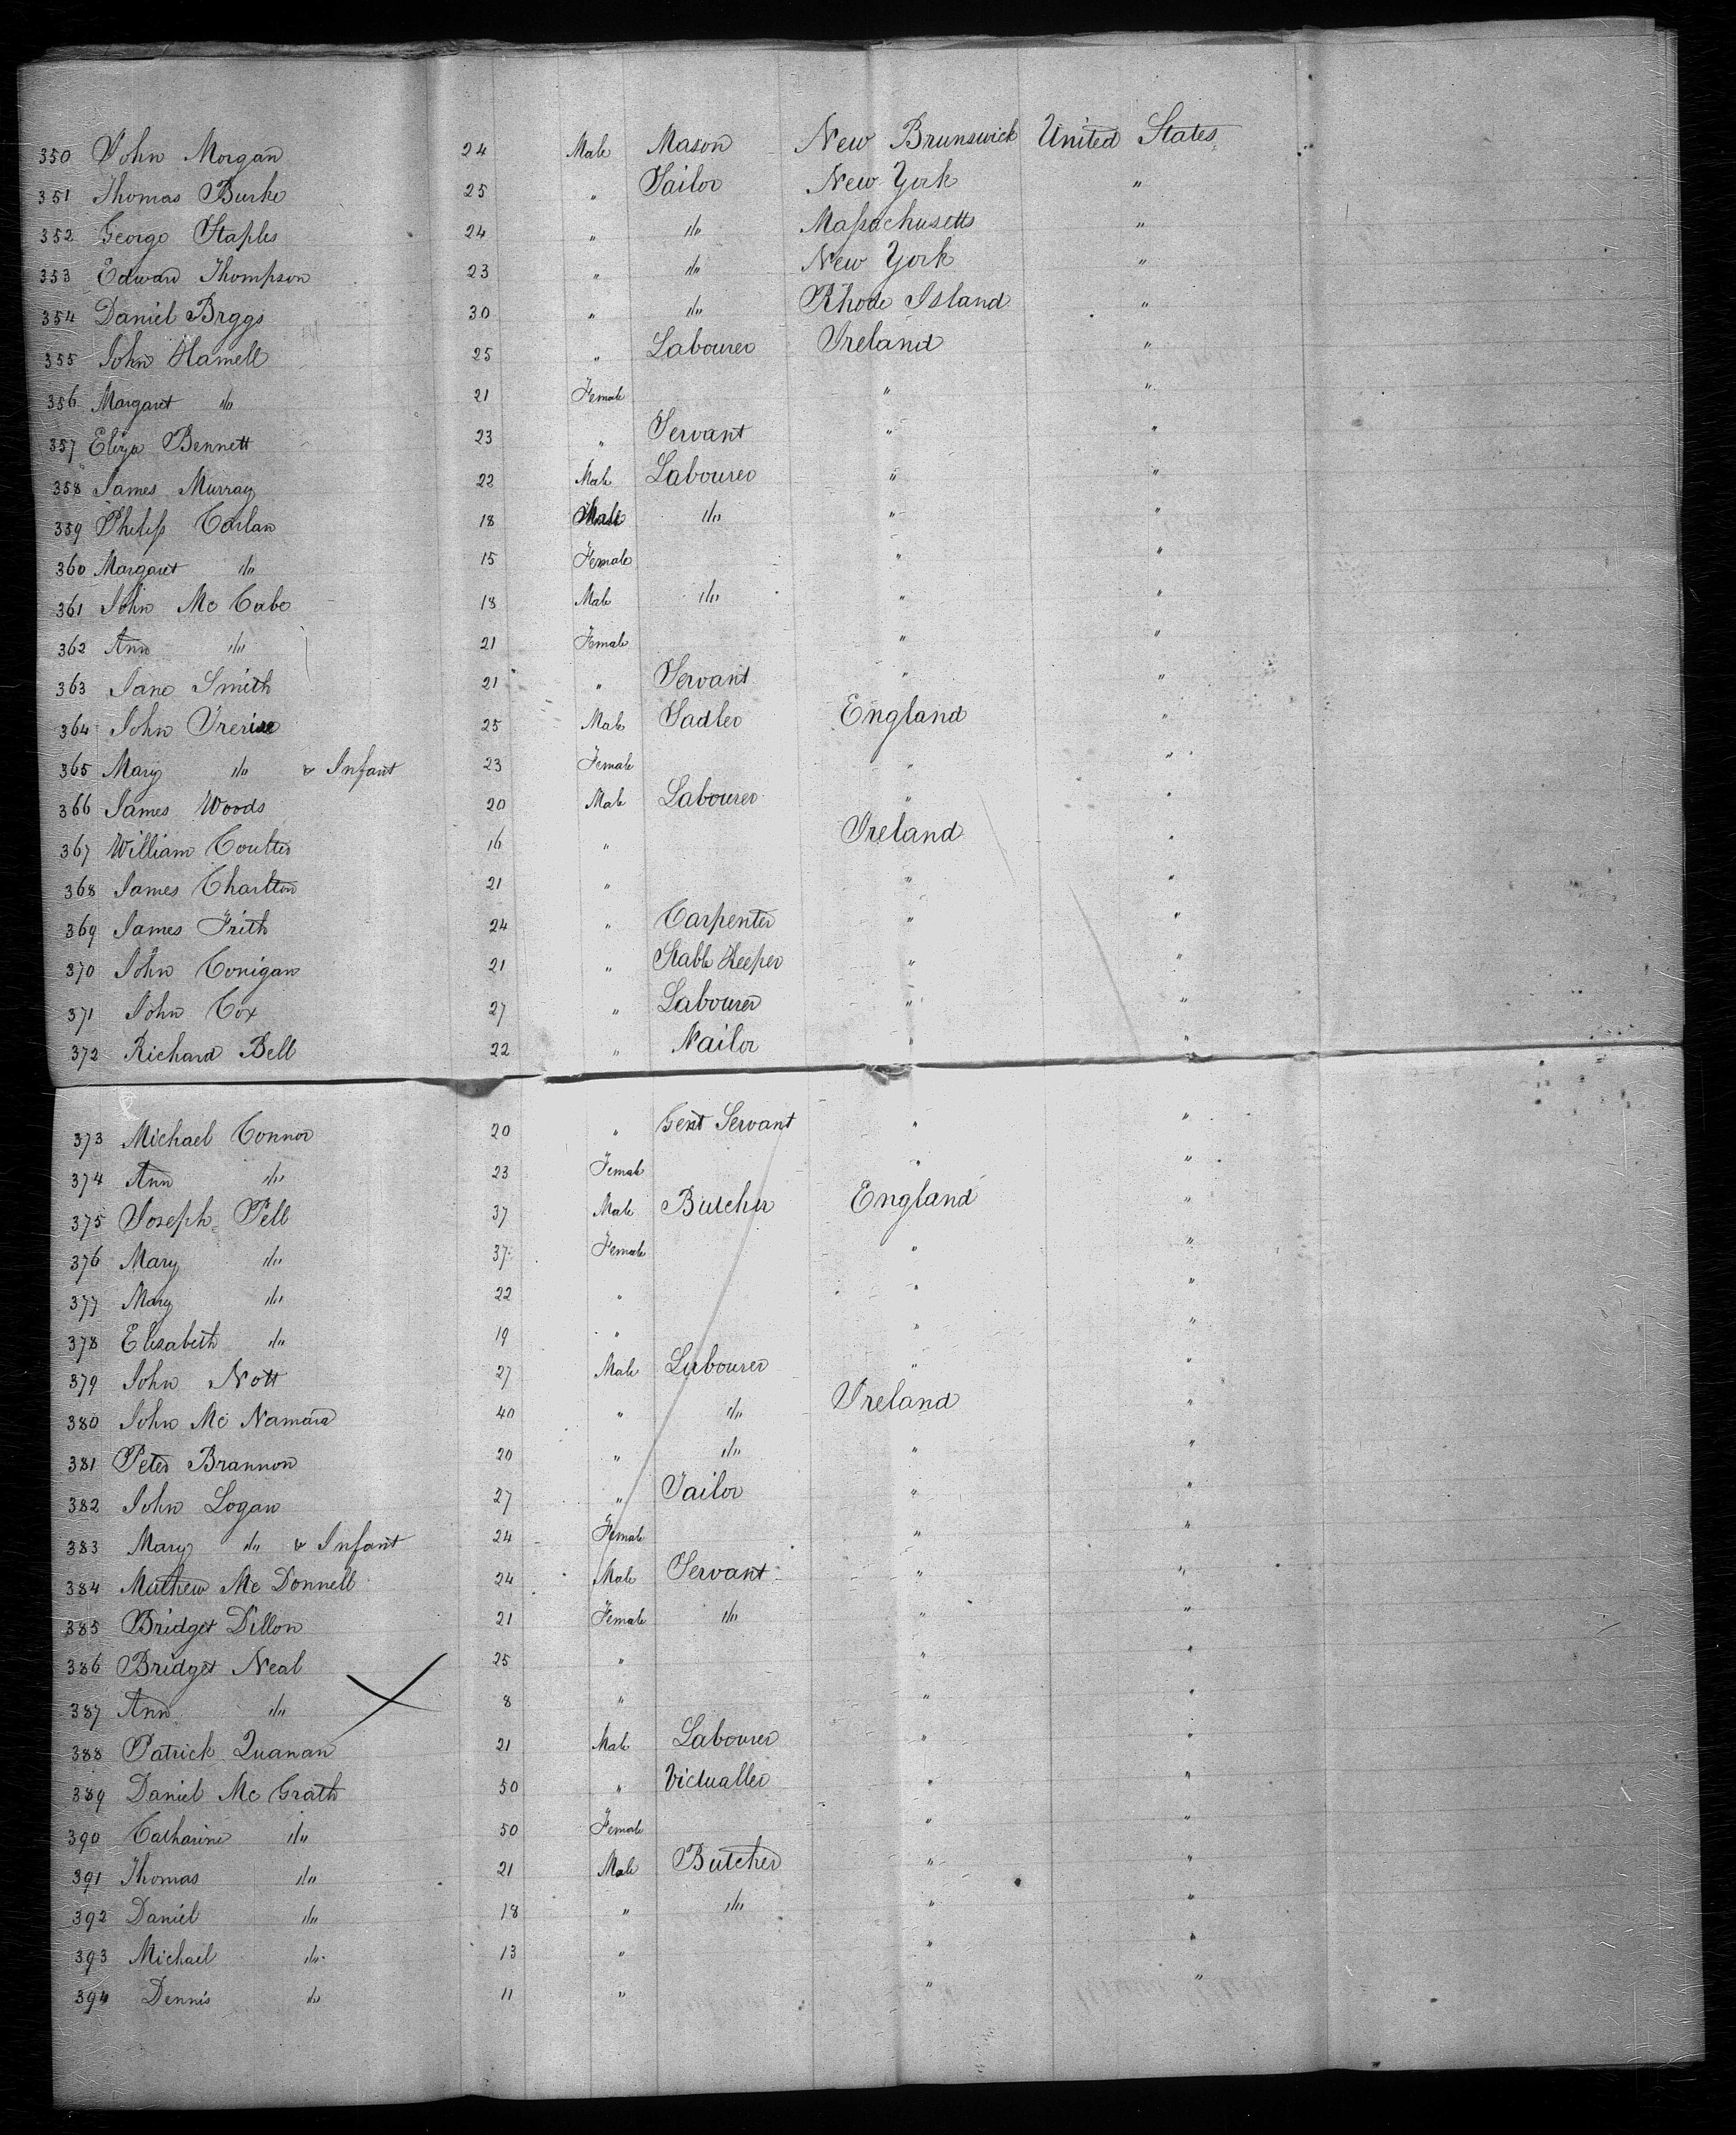 350 John Morgan 24 Male Mason New Brunswick United States
351 Thomas Burke 25 " Sailor New York "
352 George Staples 24 " "/" Massachusetts "
353 Edward Thompson 23 " "/" New York "
354 Daniel Brggs 30 " "/" Rhode Island "
355 John Hamell 25 " Labourer Ireland "
356 Margaret "/" 21 Female " "
357 Eliza Bennett 23 " Servant " "
358 James Murray 22 Male Labourer " "
359 Philip Carlan 18 Male "/" " "
360 Margaret "/" 15 Female " "
361 John Mc Cabe 18 Male "/" " "
362 Ann "/" 21 Female " "
363 Jane Smith 21 " Servant " "
364 John 25 Male Sadler England "
365 Mary "/" & Infant 23 Female " "
366 James Woods 20 Male Labourer " "
367 William Coulter 16 " Ireland "
368 James Charlton 21 " " "
369 James Frith 24 " Carpenter " "
370 John Conigan 21 " Stable Keeper " "
371 John Cox 27 " Labourer " "
372 Richard Bell 22 " Nailor " "
373 Michael Connor 20 " Gent Servant " "
374 Ann "/" 23 Female " "
375 Joseph Pell 37 Male Butcher England "
376 Mary "/" 37 Female " "
377 Mary "/" 22 " " "
378 Elisabeth "/" 19 " " "
379 John Nott 27 Male Labourer " "
380 John Mc Namara 40 " "/" Ireland "
381 Peter Brannon 20 " "/" " "
382 John Logan 27 " Tailor " "
383 Mary "/" & Infant 24 Female " "
384 Mathew Mc Donnell 24 Male Servant " "
385 Bridget Dillon 21 Female "/" " "
386 Bridget Neal 25 " " "
387 Ann "/" 8 " " "
388 Patrick Quanan 21 Male Labourer " "
389 Daniel Mc Grath 50 " Victualler " "
390 Catharine "/" 50 Female " "
391 Thomas "/" 21 Male Butcher " "
392 Daniel "/" 18 " "/" " "
393 Michael "/" 13 " " "
394 Dennis "/" 11 " " "